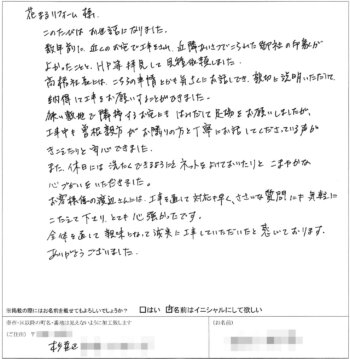 花まるリフォーム 様
このたびは お世話になりました。
数年前に 近くのお宅で工事をされ、近隣あいさつでこられた御社の印象が
よかったことと、HP等拝見して見積依頼しました。
高橋社長には、こちらの事情とかも気さくにお話しでき、親切に説明いただいて
納得して工事をお願いすることができました。
狭い敷地で隣接するお宅にも はみだして足場をお願いしましたが、
工事中も 曽根親方が お隣の方と丁寧にお話してくださっている声が
きこえたりと 安心できました。
また、休日には 洗たくできるようにと ネットをよけておいたりと こまやかな
心づかいをいただきました。
お客様係の渡辺さんには、工事を通して 対応が早く、ささいな質問にも 気軽に
こたえて下さり、とても 心強かったです。
全体を通して 親味となって 誠実に工事していただいたと 思っております。
ありがとうございました。
※掲載の際にはお名前を載せてもよろしいでしょうか? □はい ☑名前はイニシャルにして欲しい
※市・区以降の町名・番地は見えないように加工致します
(ご住所)
(お名前)